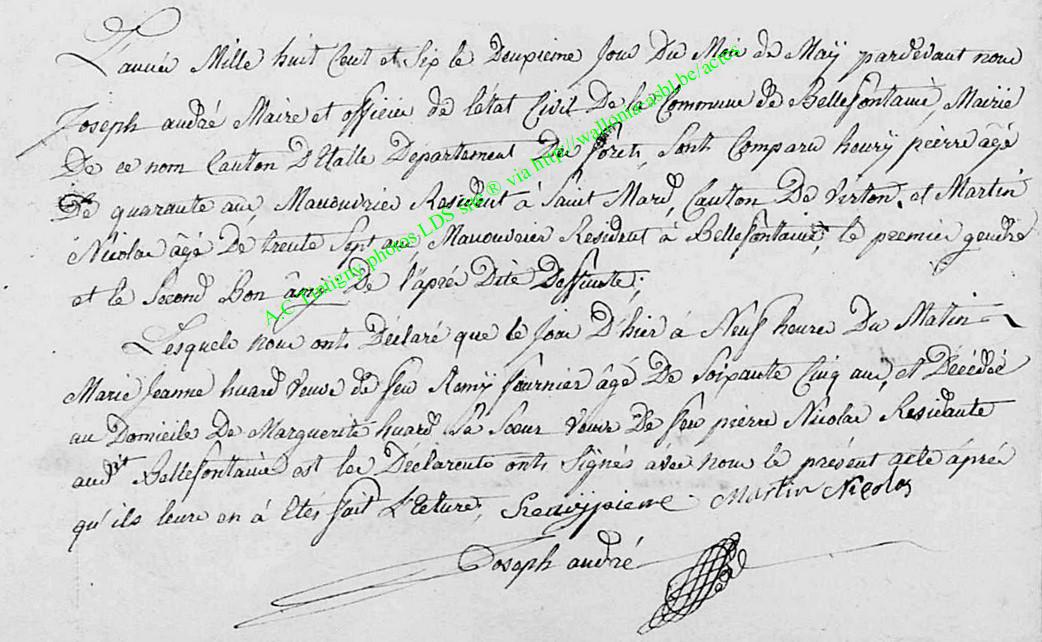 L'année Mille huit Cent et Six le Deuxieme Jour Du Mois de Maÿ pardevant nous
Joseph andré Maire et officier de l'état Civil De la Commune de Bellefontaine, Mairie
De ce nom Canton D'Etalle Departement Des forets, Sont Comparu henrÿ pierre âgé
De quarante ans Manouvrier Resident à Saint Mard, Canton De Virton, et Martin
Nicolas âgé De trente Sept ans Manouvrier Resident à Bellefontaine, le premier gendre
et le Second Bon âmi De l'aprés Dite Deffunte;
Lesquels nous onts Déclaré que le Jour D'hier à Neuf heures Du Matin
Marie Jeanne huard Veuve de feu Remÿ fournier âgé De Soixante Cinq ans, est Décédée
au Domicile De Marguerite huard Sa Soeur Veuve De feu pierre Nicolas Residante
audit Bellefontaine est les Déclarents onts Signés avec nous le présent acte âprés
qu'ils leurs en à Etés fait L'ecture, henrÿ pierre Martin Nicolas
Joseph andré
A.C Tintigny photos LDS srl® via http://wallonia.asbl.be/actes